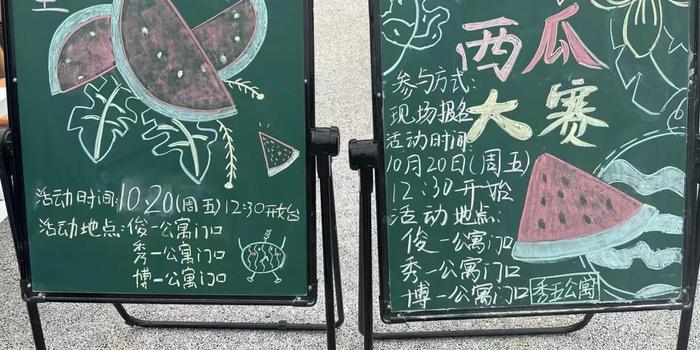 活动时间:10.20(周五)12:30开始
活动地点:俊一公寓门口
秀一公寓门口
博一公寓门口
西瓜
大赛
参与方式:
现场报名
活动时间:
10月20日(周五)
12:30开始
活动地点:
俊一公寓门口
秀一公寓门口
博一公寓门口
秀五公寓